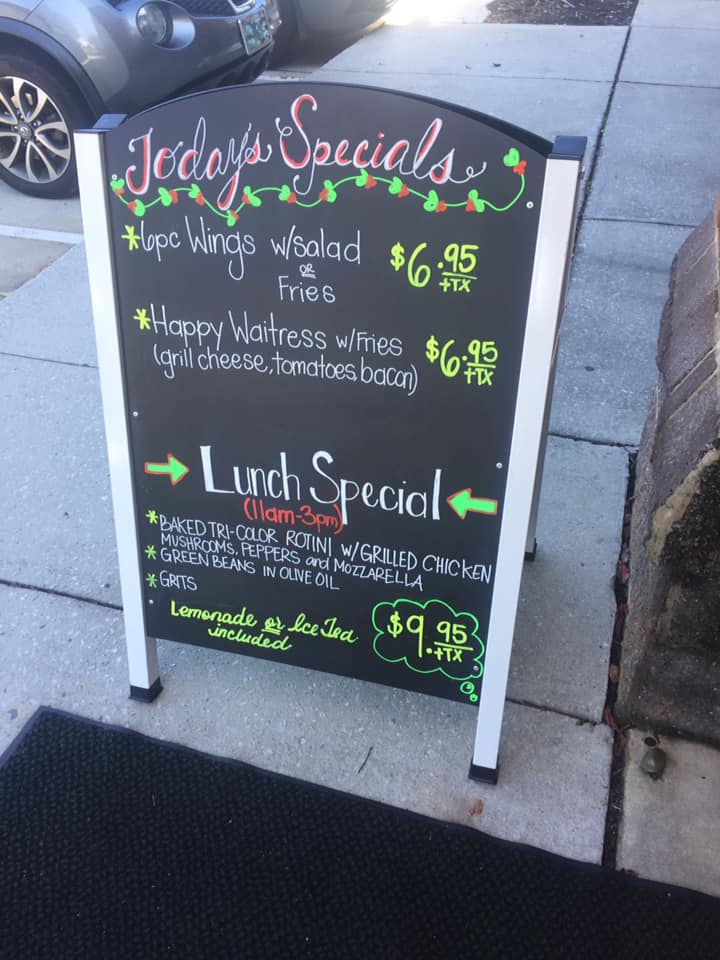 Today's Specials
*6pc Wings w/salad $6.95
or +TX
Fries
*Happy Waitress w/Fries $6.95
(grill cheese, tomatoes, bacon) +TX
Lunch Special
(11am-3pm)
*BAKED TRI-COLOR ROTINI w/GRILLED CHICKEN
MUSHROOMS, PEPPERS and MOZZARELLA
*GREEN BEANS IN OLIVE OIL
*GRITS
Lemonade or Ice Tea $9.95
included +TX